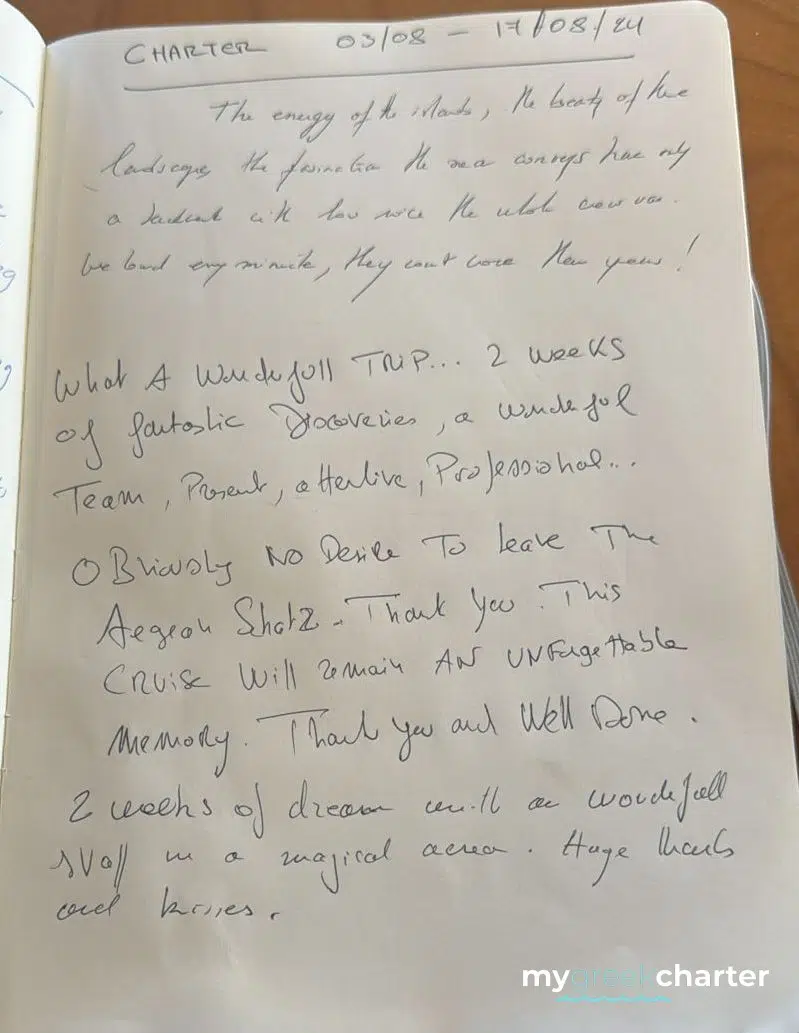 CHARTER 03/08 - 17/08/24
The energy of the islands, the beauty of the
landscape, the fascination the sea conveys have only
a with how nice the whole crew was.
We loved every minute, they count more than years!
What A Wondefull TRIP... 2 weeks
of fantastic Discoveries, a wondeful
Team, Present, attentive, Professional...
OBviously NO Desire To leave The
Aegean Shatz. Thank you. This
CRuise Will remain AN UNFORgettable
Memory. Thank you and Well Done.
2 weeks of dream with a wondefull
staff in a magical aerea. Huge thanks
and kisses.
mygreekcharter